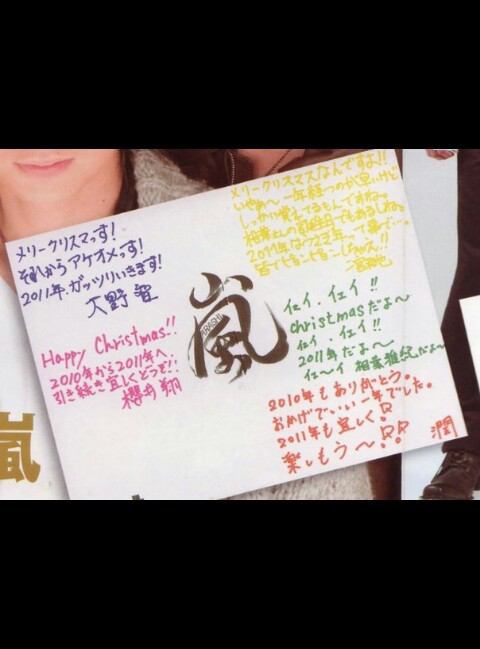 メリークリスマっす!
それからアケオメっす!
2011年、ガッツリいきます!
大野智
メリークリスマスなんですよ!!
いやぁ〜一年経つのが早いけど
しっかり覚えてるもんですね。
2011年はウサギ年って事で…
Happy Christmas!!
2010年から2011年へ
引き続き宜しくどうぞ!
櫻井翔
嵐
ARASHI
イェイ・イェイ!!
christmasだよ〜
イェイ・イェイ!!
2011年だよ〜
イェ〜イ 相葉雅紀だよ〜
2010年もありがとう。
おかげでいい一年でした。
2011年も宜しく!?
楽しもう〜!?!?
潤
嵐